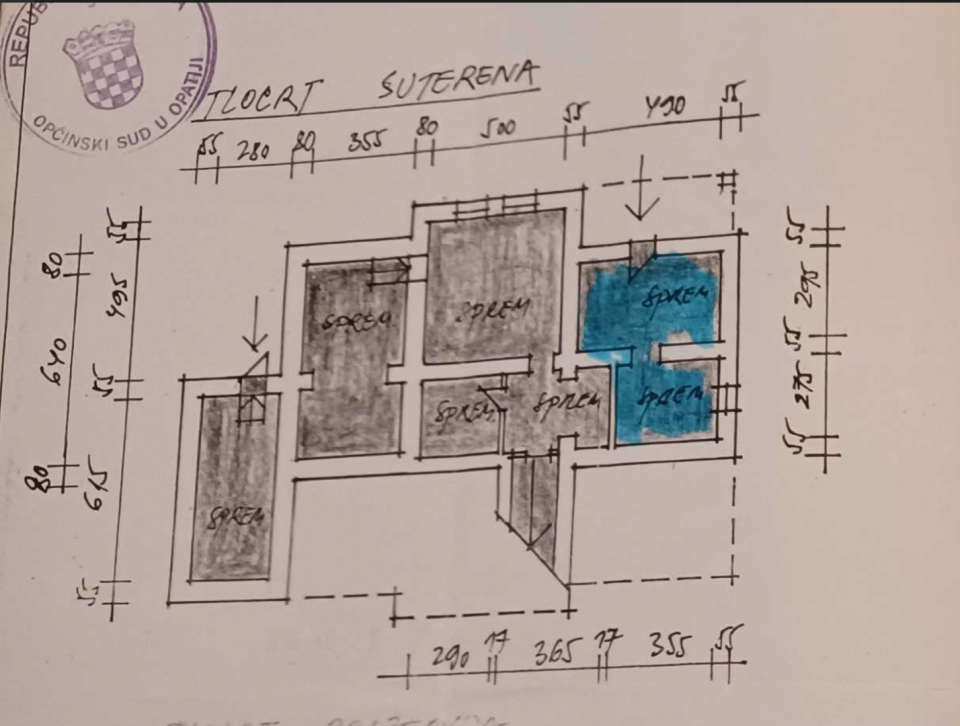 REPUB
OPĆINSKI SUD U OPATIJI
TLOCRT SUTERENA
55 280 80 355 80 500 55 490 55
80 640 80
55 495 55 615 55
55 295 55 275 55
SPREM
SPREM
SPREM
SPREM
SPREM
SPREM
SPREM
290 17 365 17 355 55